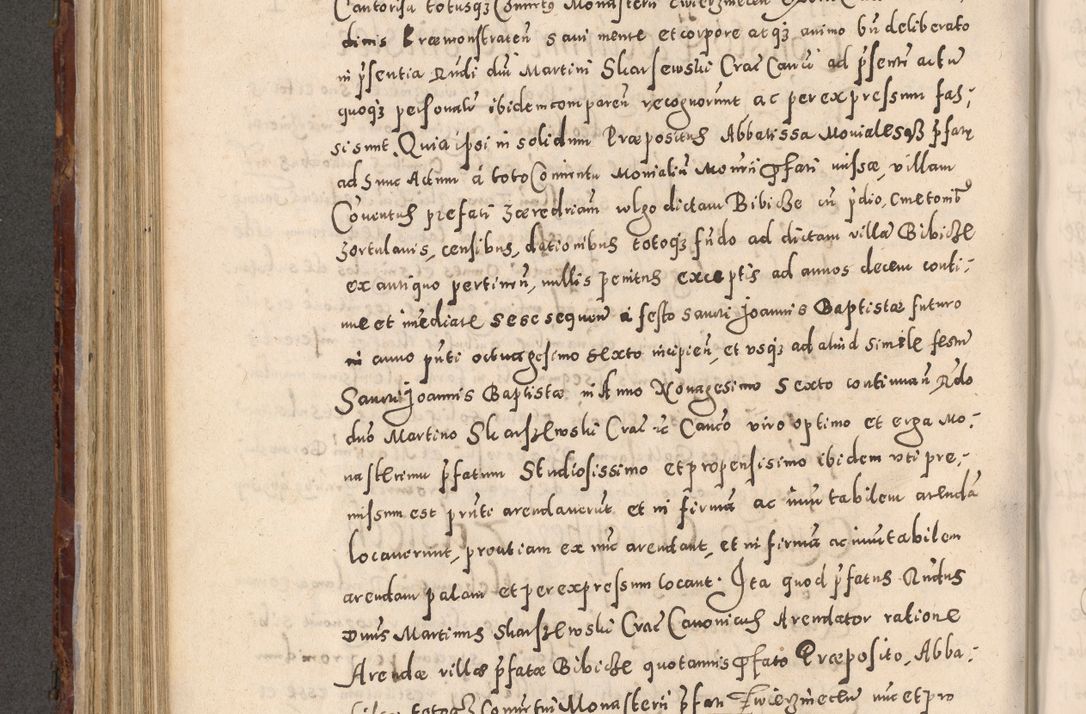 Cantorisa totusq3 Conventus Monasterii
dinis Præmonstrateñ sani mente et corpore atq3 animo bñ deliberato
in p̃sentia Rñdi dñi Martini Skarsewski Crac̃ Canci ad p̃sentẽ actũ
quoq3 personalr̃ ibidem compareñ recognorũnt ac per expressum fas,
si sunt Quia ipsi in solidum Præpositus Abbatissa Monialesq3 p̃fatæ
ad hunc Actum á toto Conventu Monialiũ Mon̄rii p̃fati missæ, villam
Coventus prefati hæredriam vlgo dictam Bibicze cũ p̃dio, Cmetonib9
hortulanis, censibus, dationibus totoq3 fũdo ad dictam villã Bibicze
ex antiquo pertineñ, nullis penitus exceptis ad annos decem conti,
nue et im̃ediate sese sequeñ a festo sancti Joannis Baptistæ futuro
in anno p̃nti octuagesimo sexto incipieñ, et vsq3 ad aliud simile festũ
Sancti Joannis Baptistæ in Anno Nonagesimo Sexto continuañ R̃do
dño Martino Skarszewski Crac̃ ec̃ Canc̃o viro optimo et erga Mo,
nasterium p̃fatum Studiosissimo et propensissimo ibidem vti pre,
missum est p̃nti arendaverũt et in firmã ac im̃utabilem arendã
locaverunt, prout iam ex nũc arendant, et in firmã ac im̃utabilem
arendam palam et per expressum locant. Ita quod p̃fatus R̃ndus
Dñus Martinus Skarszewski Crac̃ Canonicus Arendator ratione
Arendæ villæ p̃fatæ Bibicze quotannis p̃fato Præposito, Abba,
totoq3 Conventui Monasterii p̃fati Zwierzinecen̄ nũc et pro